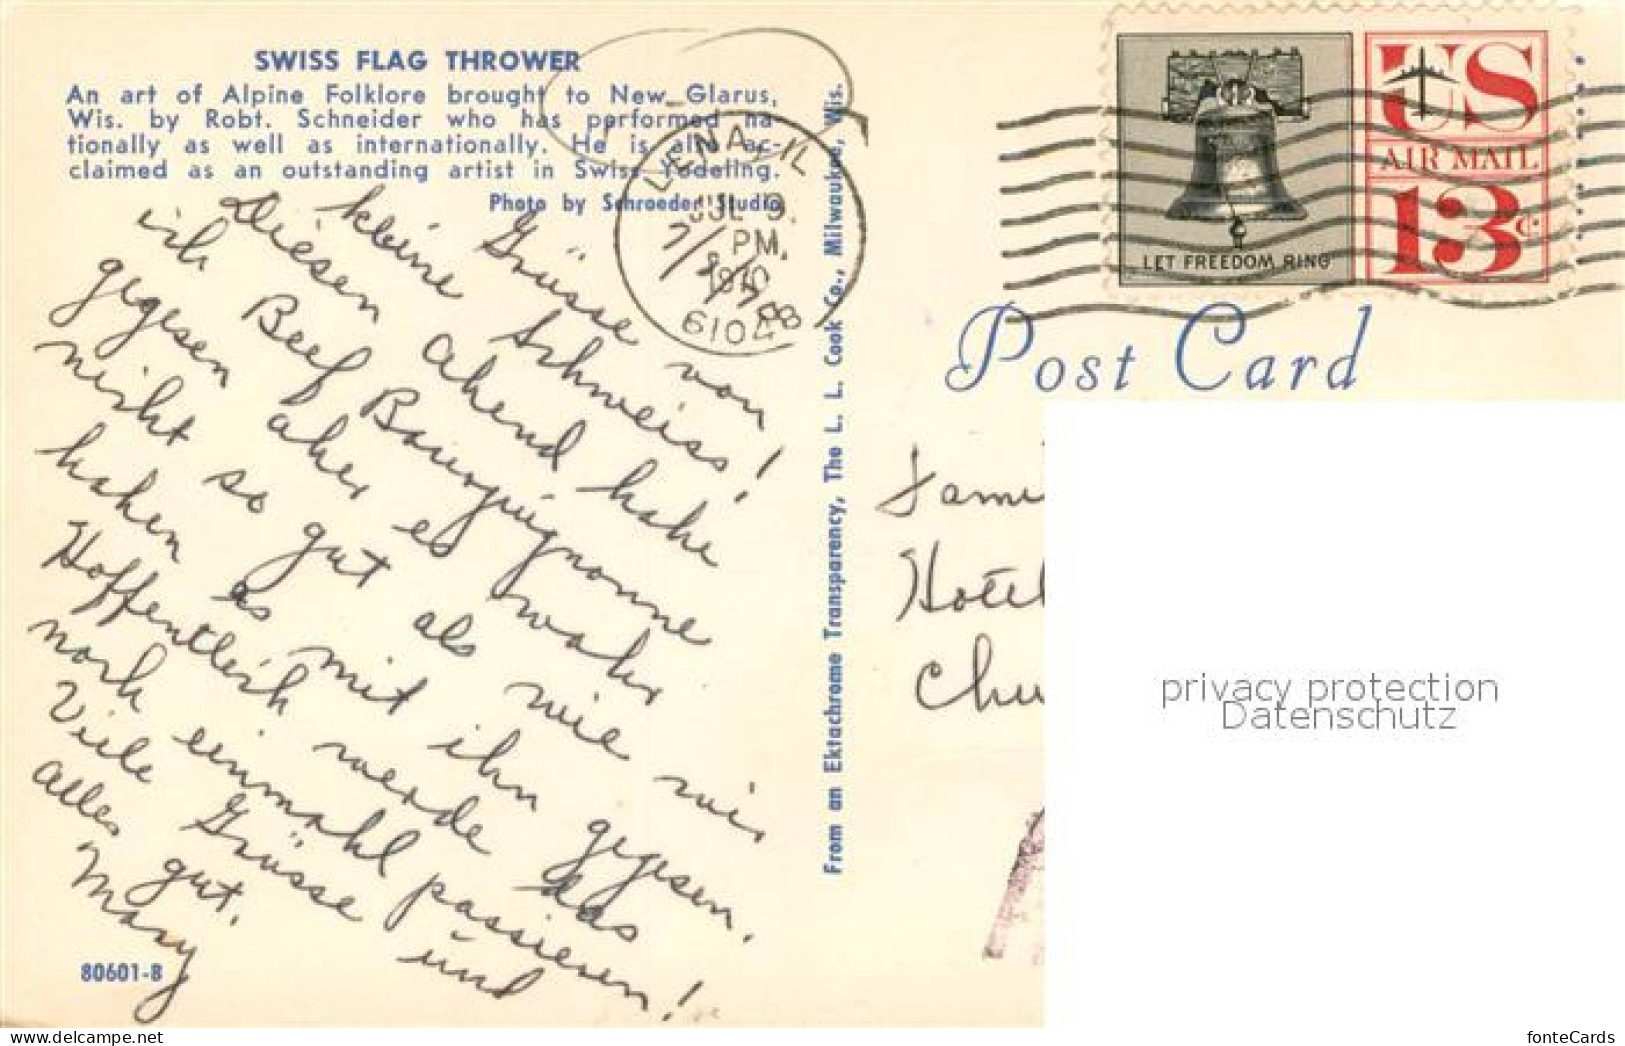 SWISS FLAG THROWER
An art of Alpine Folklore brought to New Glarus,
Wis. by Robt. Schneider who has performed na-
tionally as well as internationally. He is also ac-
claimed as an outstanding artist in Swiss Yodeling.
Photo by Schroeder Studio
LENA, IL
JUL 9
PM
61048
kleine Grüsse von
Schweiss!
Diesen Abend habe
ich Beef Bourguignonne
gegesen aber es wahr
nicht so gut als wie wir
haben es mit ihn gegesen.
Hoffentleich werde das
noch einmahl passieren!
Viele Grüsse und
alles gut.
Mary
80601-B
From an Ektachrome Transparency, The L. L. Cook Co., Milwaukee, Wis.
LET FREEDOM RING
US
AIR MAIL
13c
Post Card
Fami
Hotel
Chu
privacy protection
Datenschutz
delcampe.net
fonteCards